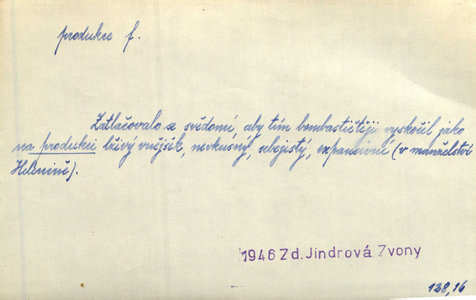 produkce f.
Zatlačovalo se svědomí, aby tím bombastičtěji vyskočil jako
na produkci lživý vnějšek, nevkusný, sebejistý, expansivní (v manželství
Helenině).
1946 Zd. Jindrová Zvony
128,16